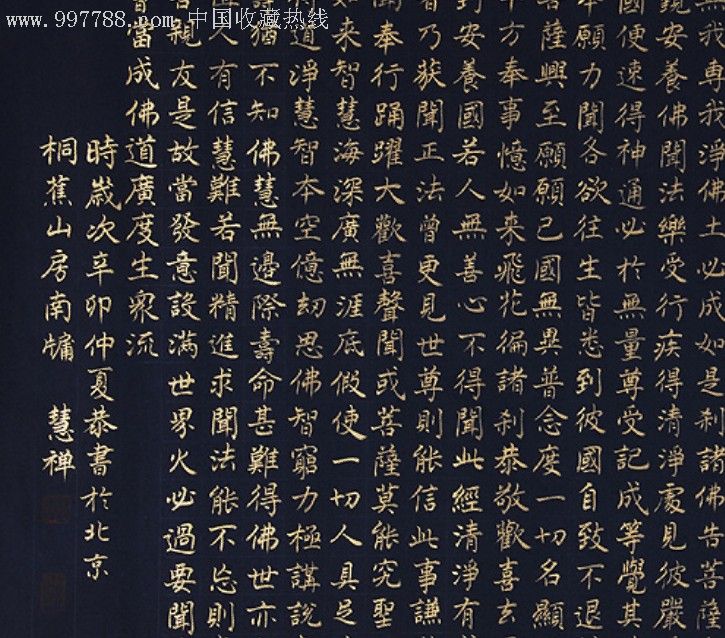 www.997788.com 中国收藏热线
無我専我淨佛土必成如是刹諸佛告菩薩
鏡安養佛聞法樂受行疾得清淨處見彼嚴
國便速得神通必於無量尊受記成等覺其
本願力聞各欲往生皆悉到彼國自致不退
菩薩興至願願己國無異普念度一切名顯
十方奉事憶如来飛花徧諸刹恭敬歡喜去
到安養國若人無善心不得聞此經清淨有
者乃获聞正法曾更見世尊則能信此事謙
聞奉行踊躍大歡喜聲聞或菩薩莫能究聖
如来智慧海深廣無涯底假使一切人具足
道淨慧智本空億劫思佛智窮力極講說
猶不知佛慧無邊際壽命甚難得佛世亦
人有信慧難若聞精進求聞法能不忘則
善親友是故當發意設滿世界火必過要聞
當成佛道廣度生衆流
時歲次辛卯仲夏恭書於北京
桐蕉山房南牖 慧禅